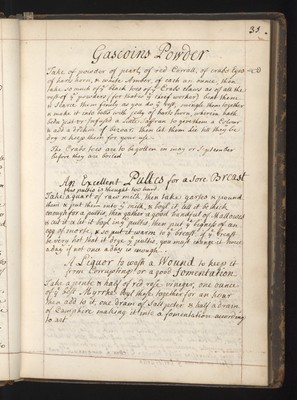 31
Gascoins Powder
Take of powder of pearl, of red Corrall, of crabs Eyes
of harts horn, & white Amber, of each an ounce, then
take so much of the black toes of the Crabs claws as of all the
rest of the powders (for that is the chief worker) beat them
& searce them finely as you do the best, mingle them together
& make it into balls with jelly of harts horn, wherein hath
been
& add a of bezoar, then let them lie till they be
dry & keep them for your use.
The Crabs toes are to be gotten in may or September
before they are boiled
An Excellent Pultis for a Sore Breast
this pultis is thought too hard
Take a quart of raw milk, then take and pound
them & put them into the milk & boyl it, till it be thick
enough for a pultis, then gather a good handful of Mallowes
& cut it & let it boyl in the pultis, then put the of an
egg of and so put it warm to the breast, if the breast
be very hot that it drye the pultis, you must change it twice
a day if not one a day is enough.
A Liquor to wash a Wound to keep it
from Corrupting, or a good fomentation.
Take a pinte & half of red rose vinegar, one ounce
of the best Myrrhe, boyl these together for an hour
then add to it, one dram of Salt peter, & half a dram
of Camphire making it into a fomentation according
to art